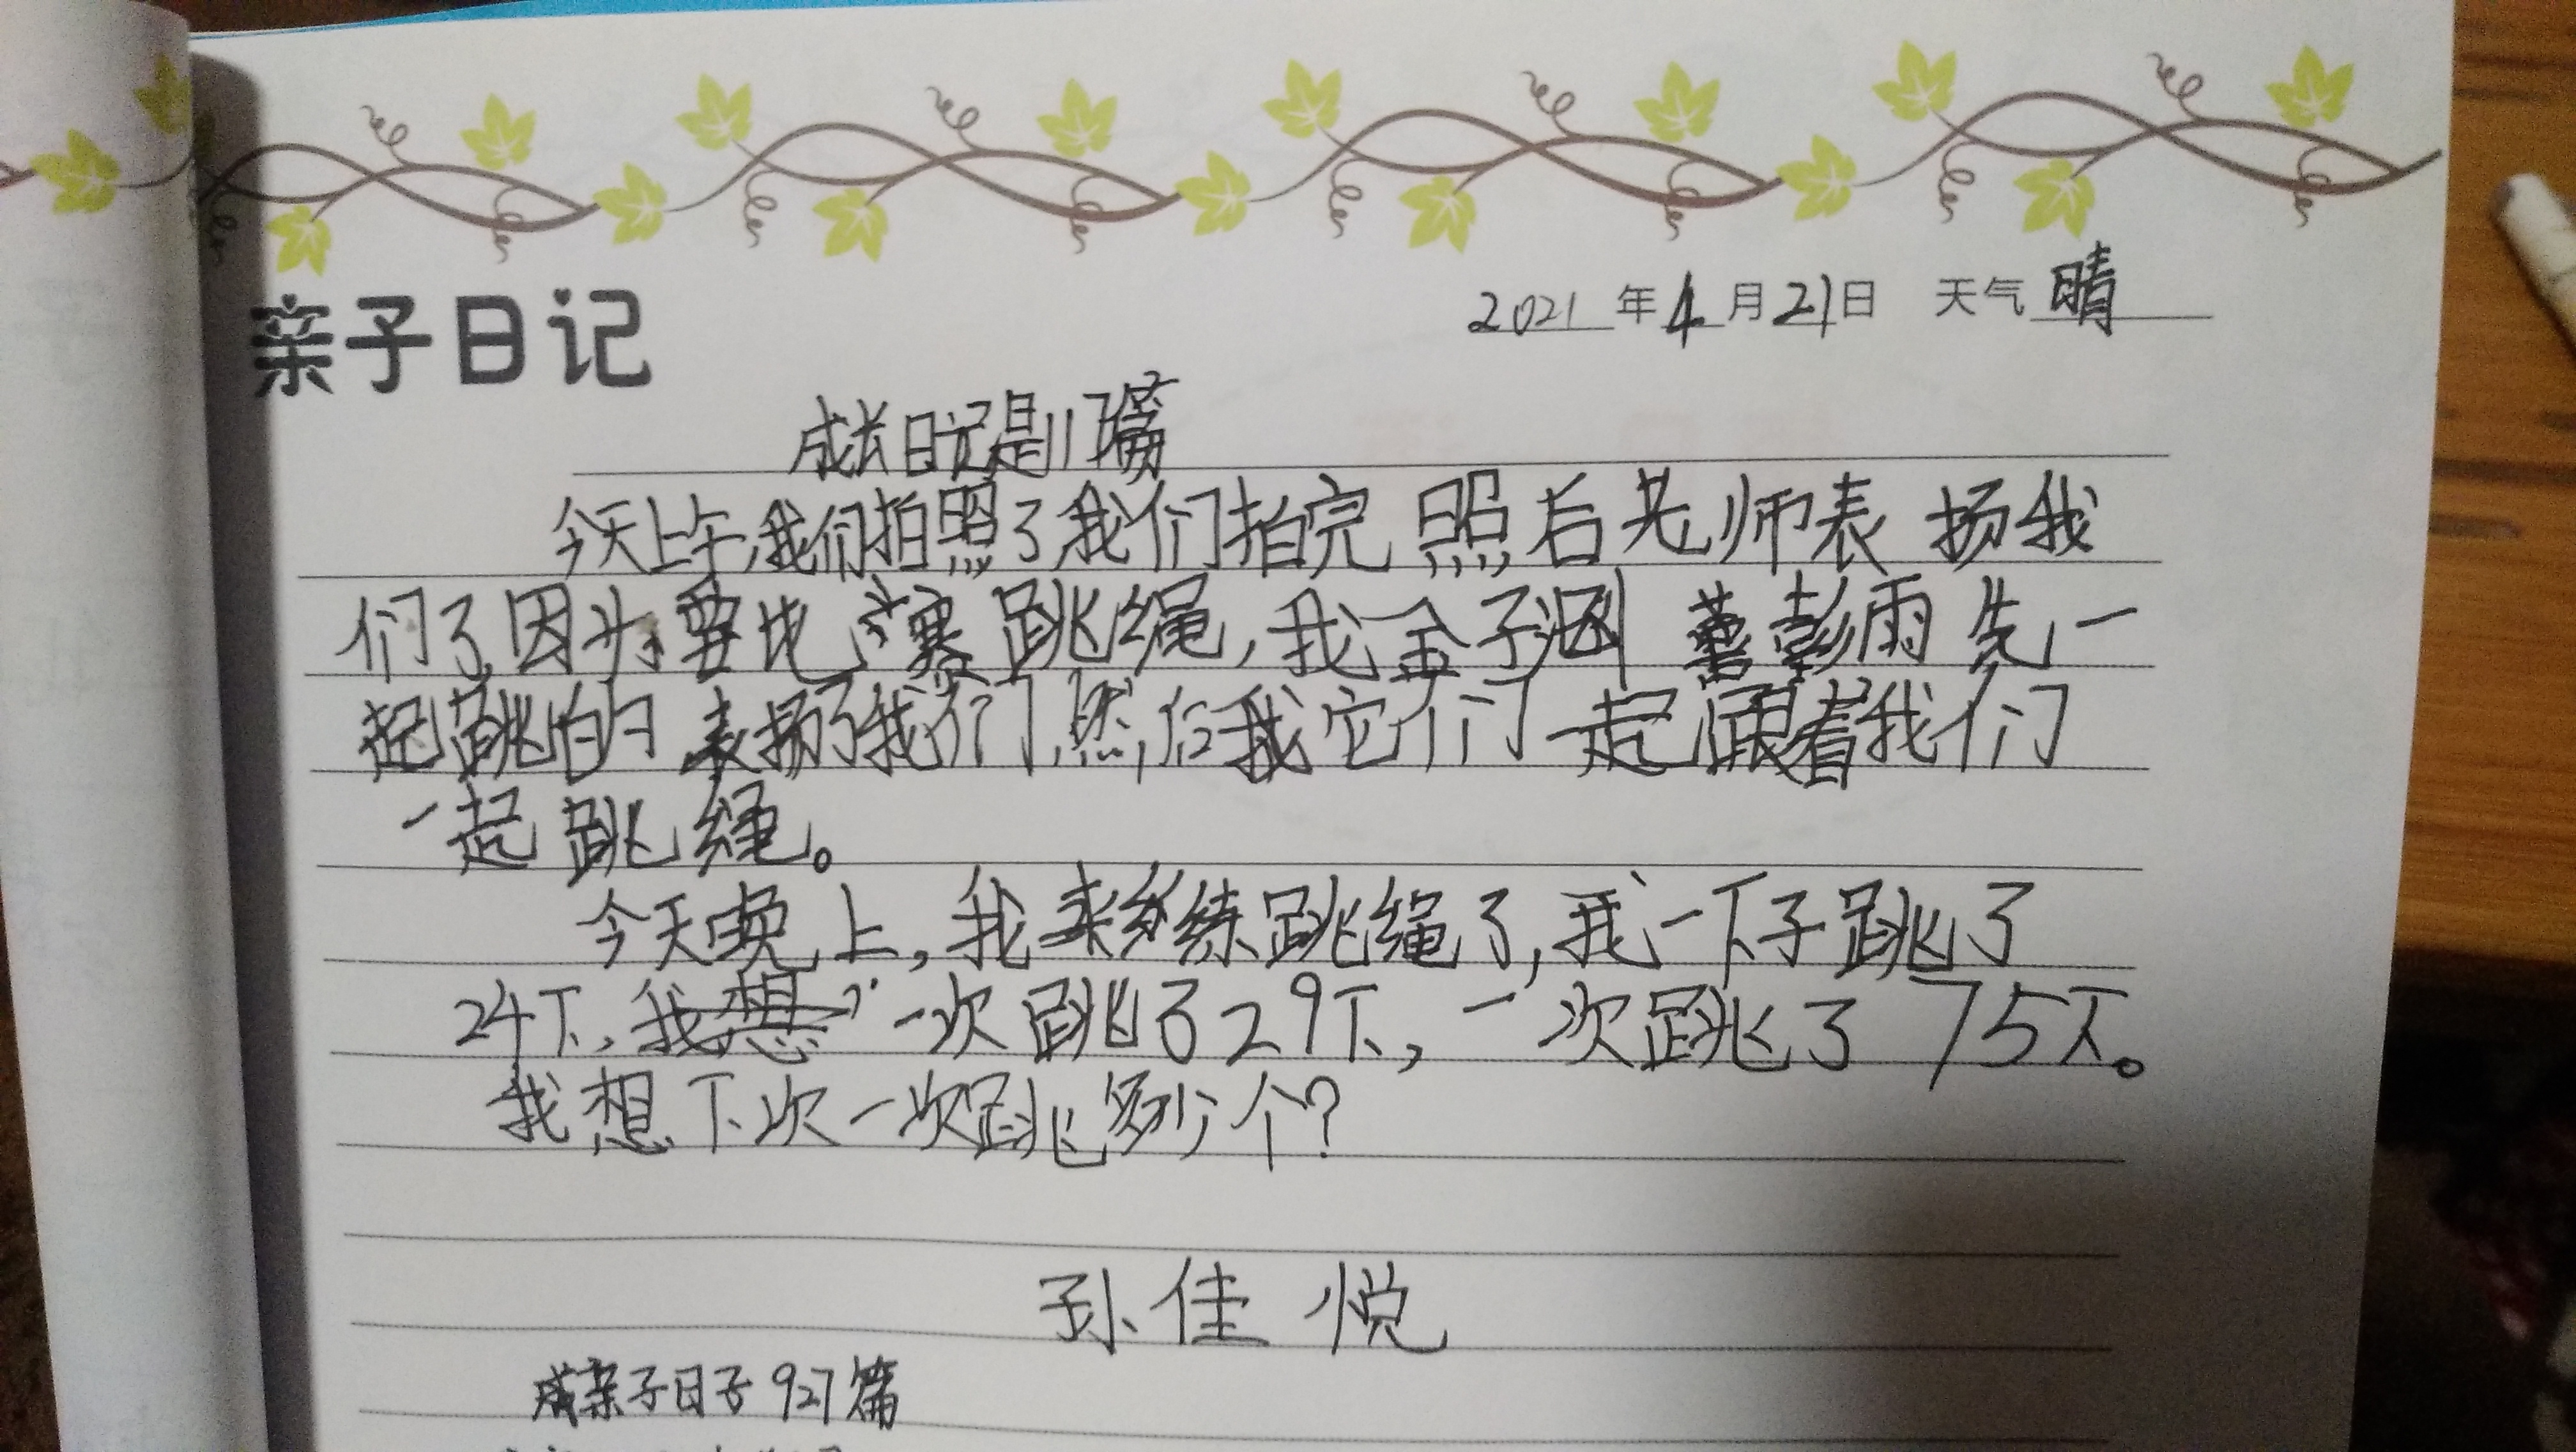 亲子日记
2021年4月21日 天气晴
成长日记是117篇
今天上午,我们拍照了我们拍完照后老师表扬我
们了,因为要比赛跳绳,我金子涵 曹彭雨先一
起跳的 表扬了我们,然后我它们一起跟着我们
一起跳绳。
今天晚上,我来练跳绳了,我一下子跳了
24下,一次跳了29下,一次跳了75下。
我想下次一次跳多少个?
孙佳悦
亲子日子927篇